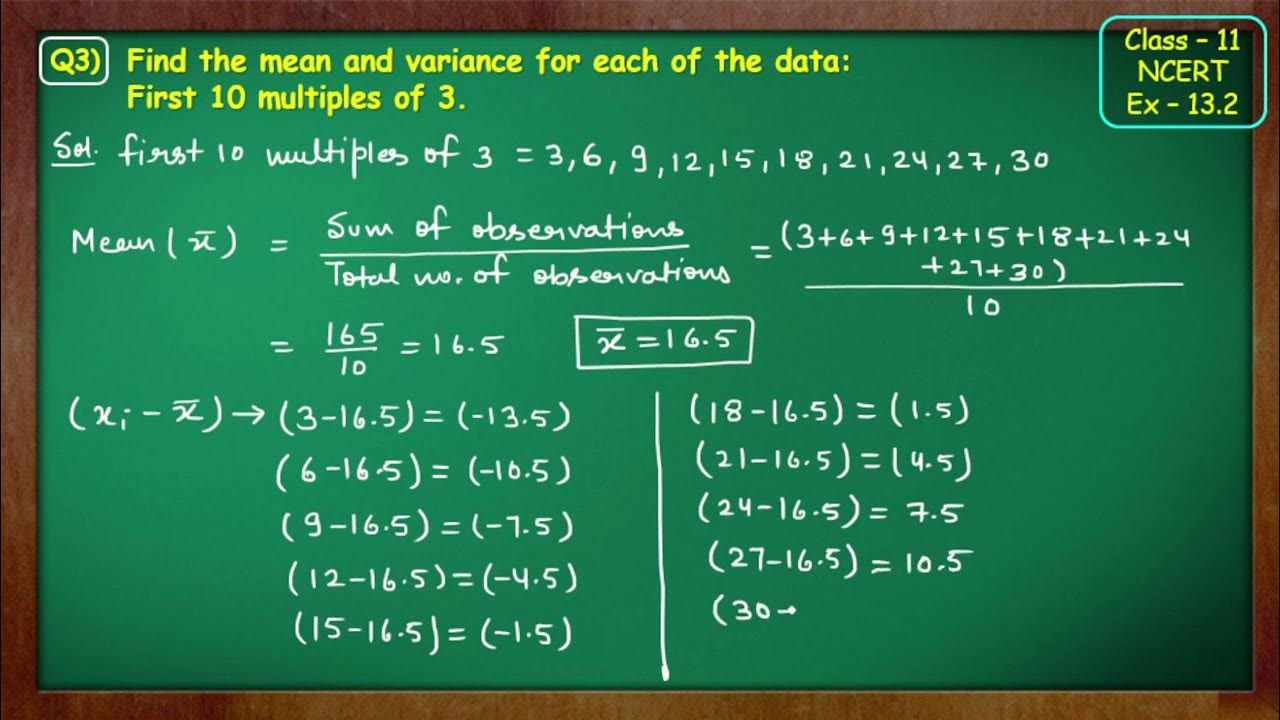 Q3) Find the mean and variance for each of the data:
First 10 multiples of 3.
Class – 11
NCERT
Ex – 13.2
Sol. first 10 multiples of 3 = 3, 6, 9, 12, 15, 18, 21, 24, 27, 30
Mean (x̄) = Sum of observations / Total no. of observations = (3+6+9+12+15+18+21+24
+27+30) / 10
= 165/10 = 16.5 x̄ = 16.5
(xᵢ - x̄) → (3-16.5) = (-13.5)
(6-16.5) = (-10.5)
(9-16.5) = (-7.5)
(12-16.5) = (-4.5)
(15-16.5) = (-1.5)
(18-16.5) = (1.5)
(21-16.5) = (4.5)
(24-16.5) = 7.5
(27-16.5) = 10.5
(30-